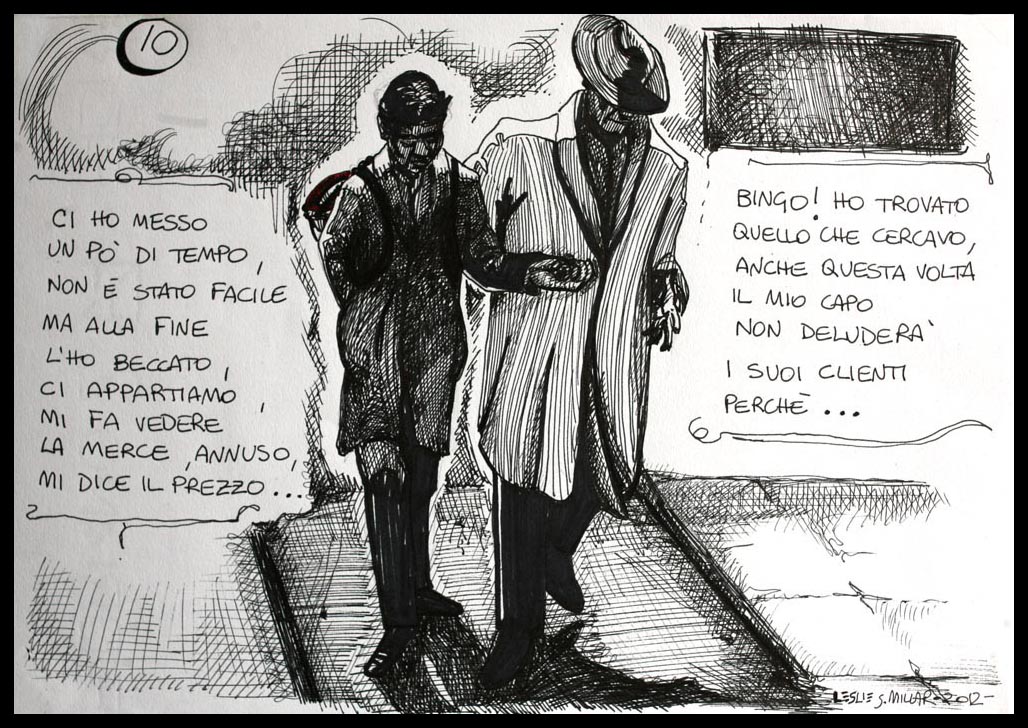 10
CI HO MESSO
UN PÒ DI TEMPO,
NON È STATO FACILE
MA ALLA FINE
L'HO BECCATO,
CI APPARTIAMO,
MI FA VEDERE
LA MERCE, ANNUSO,
MI DICE IL PREZZO...
BINGO! HO TROVATO
QUELLO CHE CERCAVO,
ANCHE QUESTA VOLTA
IL MIO CAPO
NON DELUDERA'
I SUOI CLIENTI
PERCHÈ...
LESLIE S. MILLAR-2012-